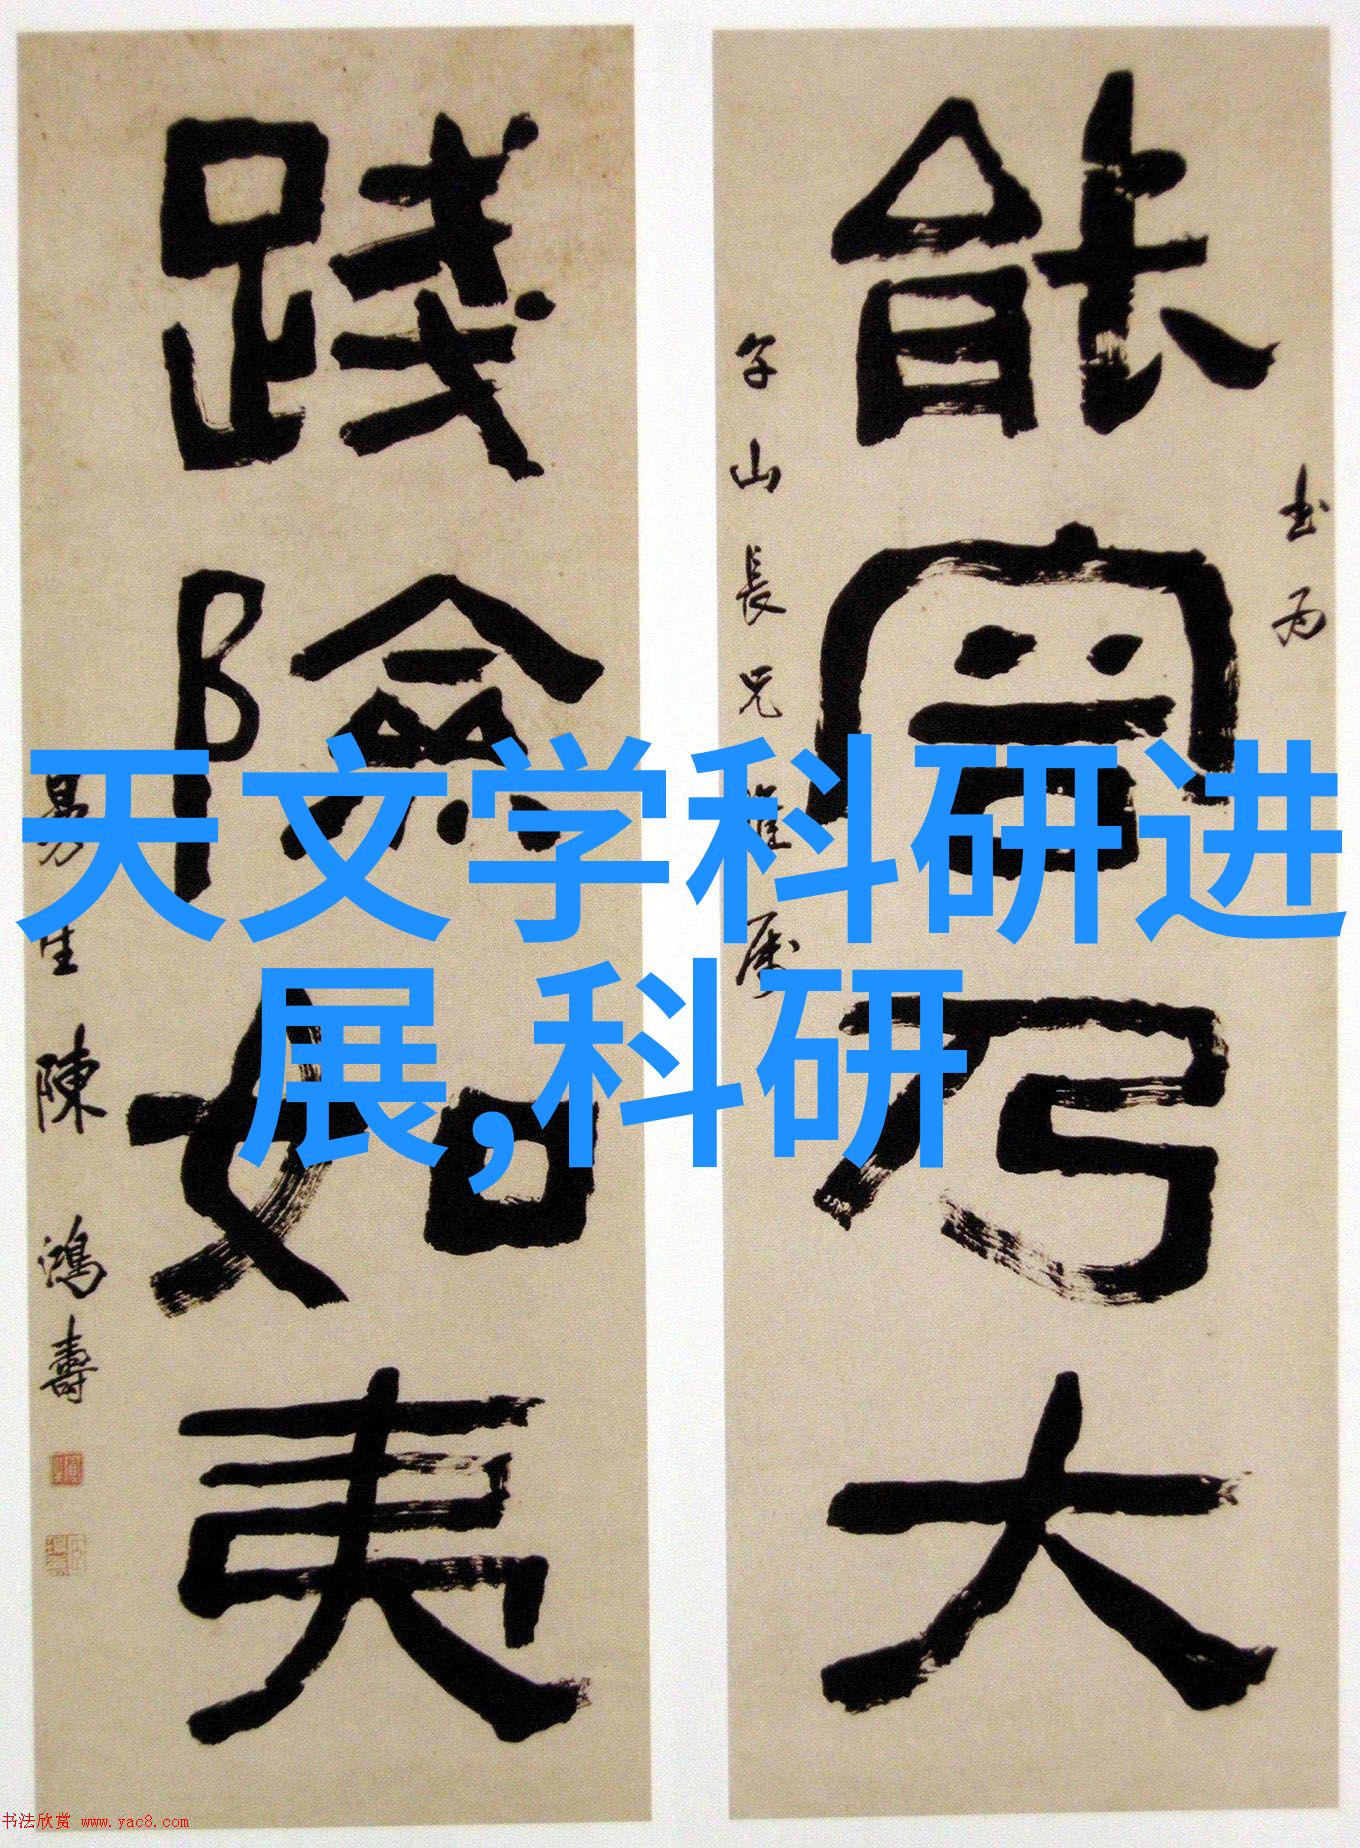 能容乃大
山長兄
踐險如夷
曼生陳鴻壽
天文学科研进
展,科研
书法欣赏 www.yac8.com